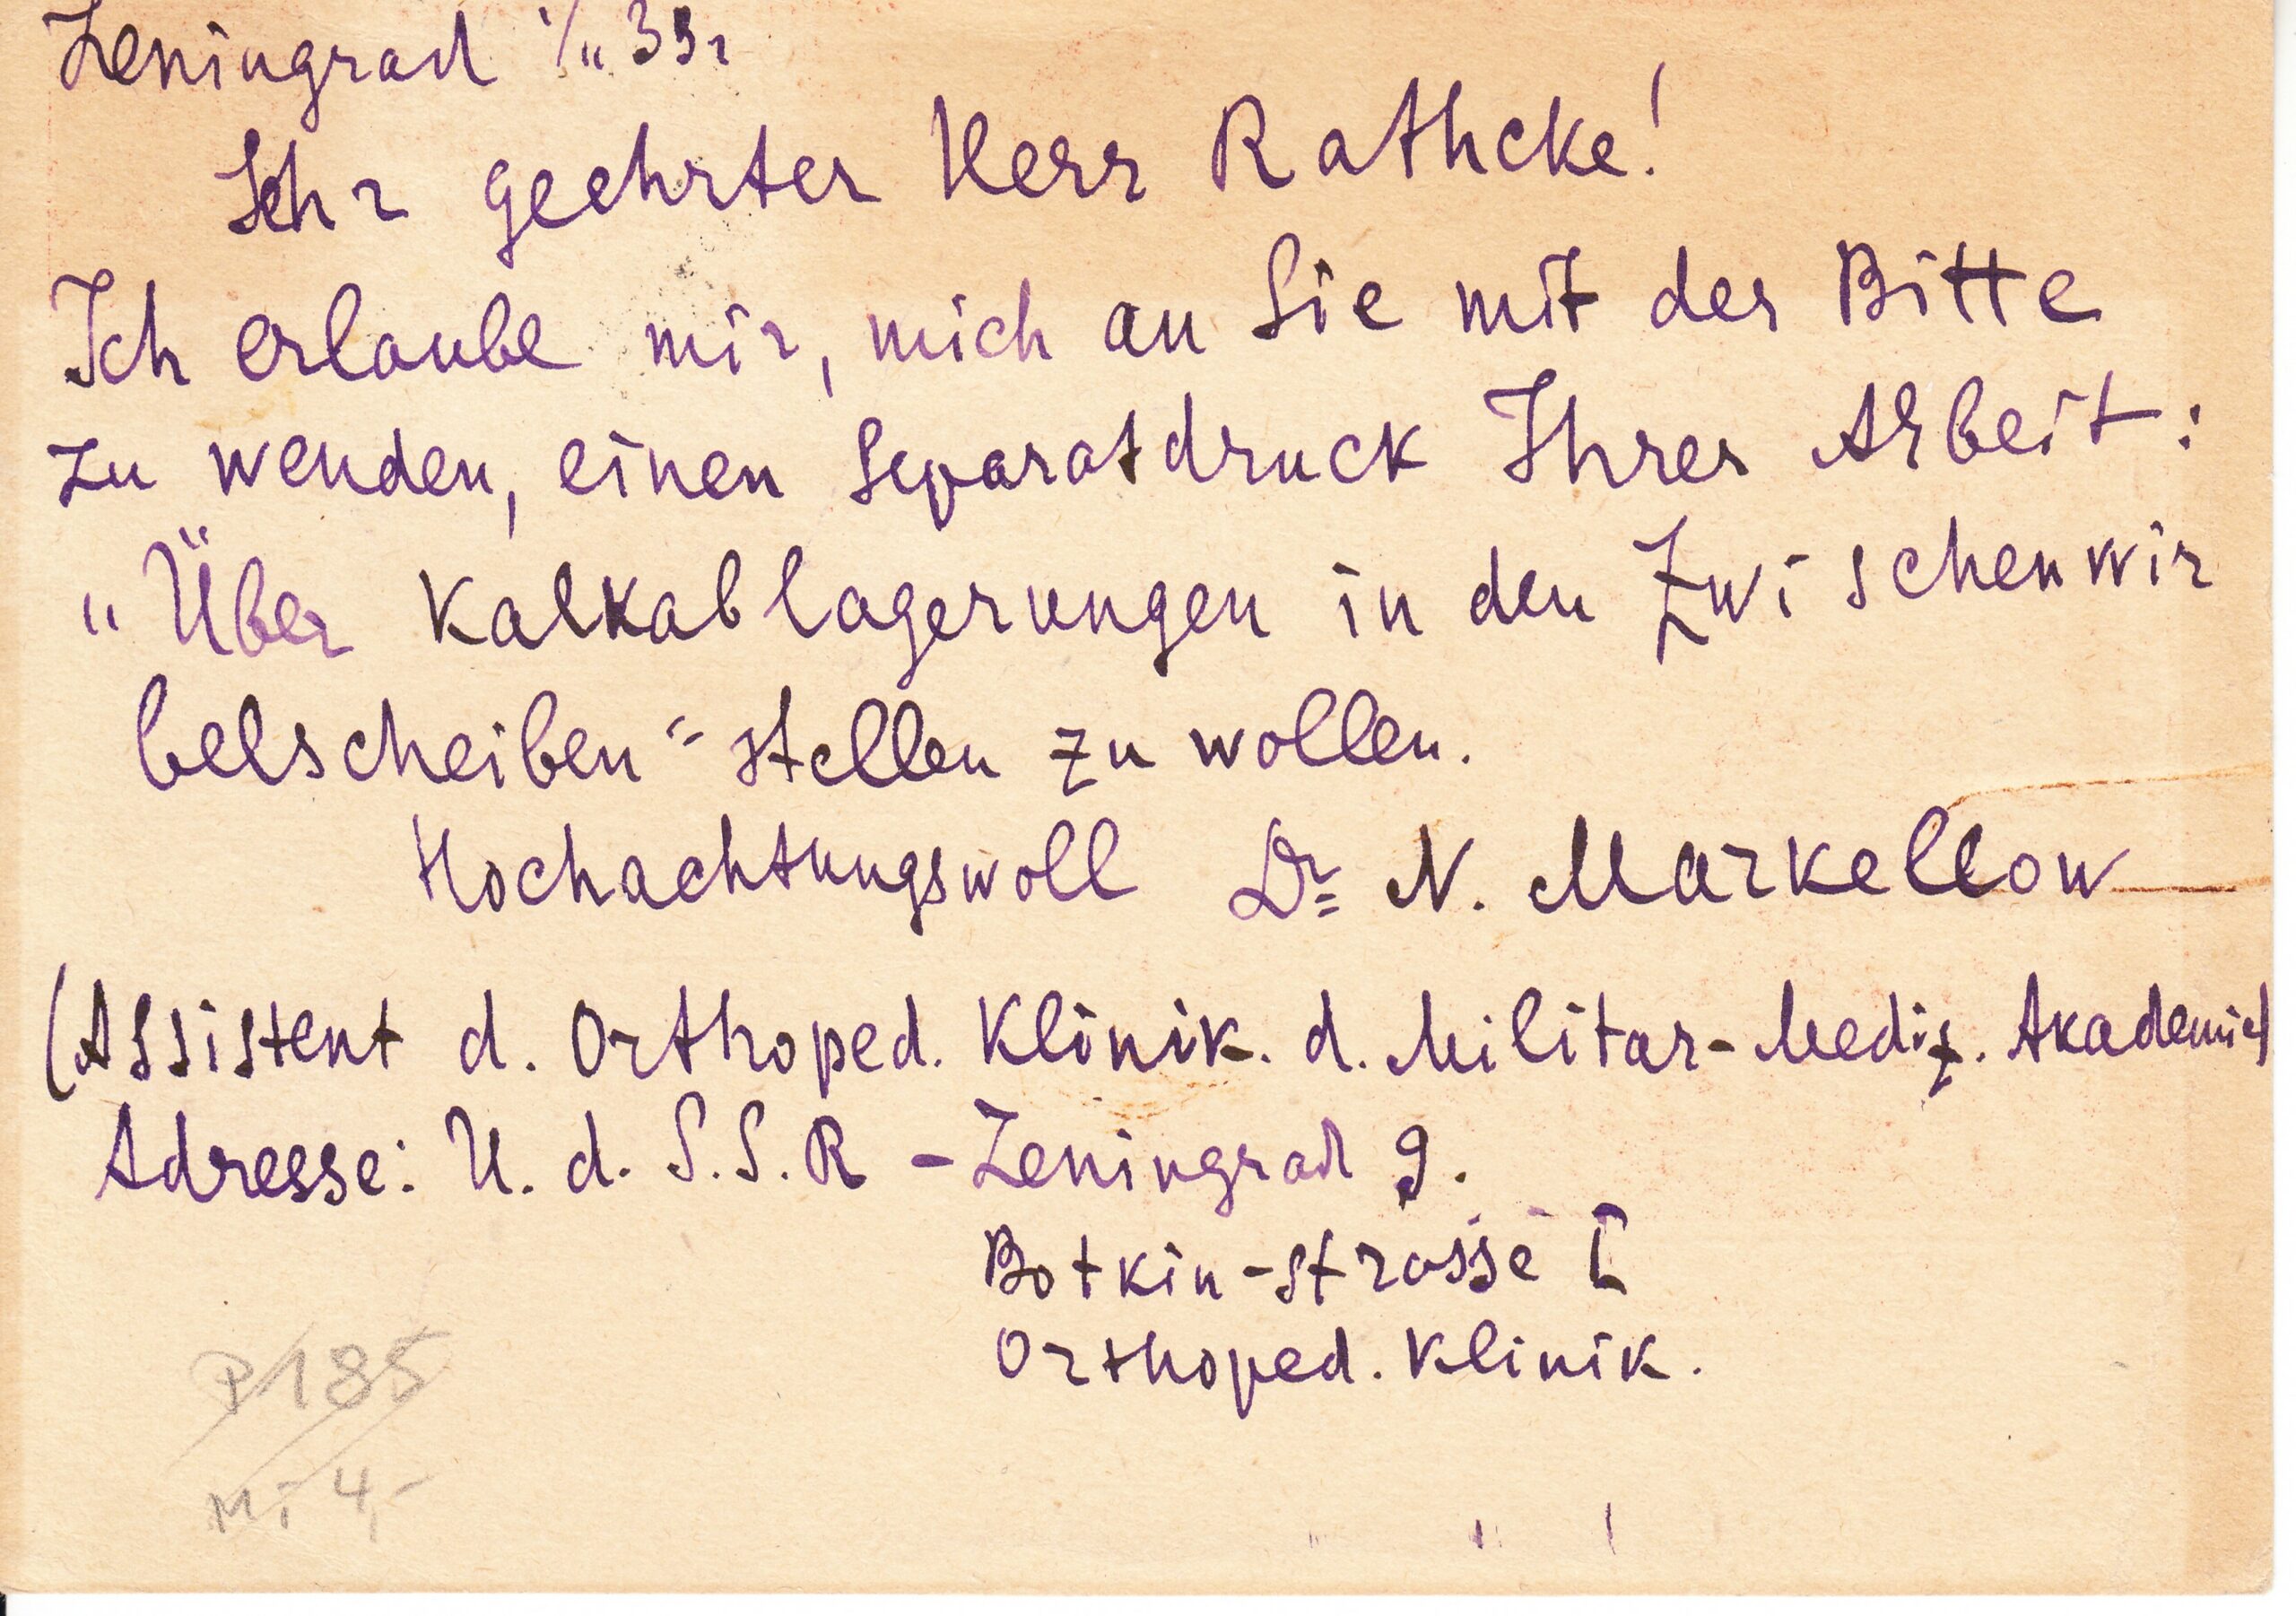 Leningrad 1/II 39г
Sehr geehrter Herr Rathcke!
Ich erlaube mir, mich an Sie mit der Bitte
zu wenden, einen Separatdruck Ihrer Arbeit:
„Über Kalkablagerungen in den Zwischenwir
belscheiben“ stellen zu wollen.
Hochachtungswoll Dr N. Markellow
(Assistent d. Orthoped. Klinik. d. Militar-Mediz. Akademie)
Adresse: U. d. S.S.R - Leningrad 9.
Botkin-strasse
Orthoped. Klinik.
P 185
Mi 4,-